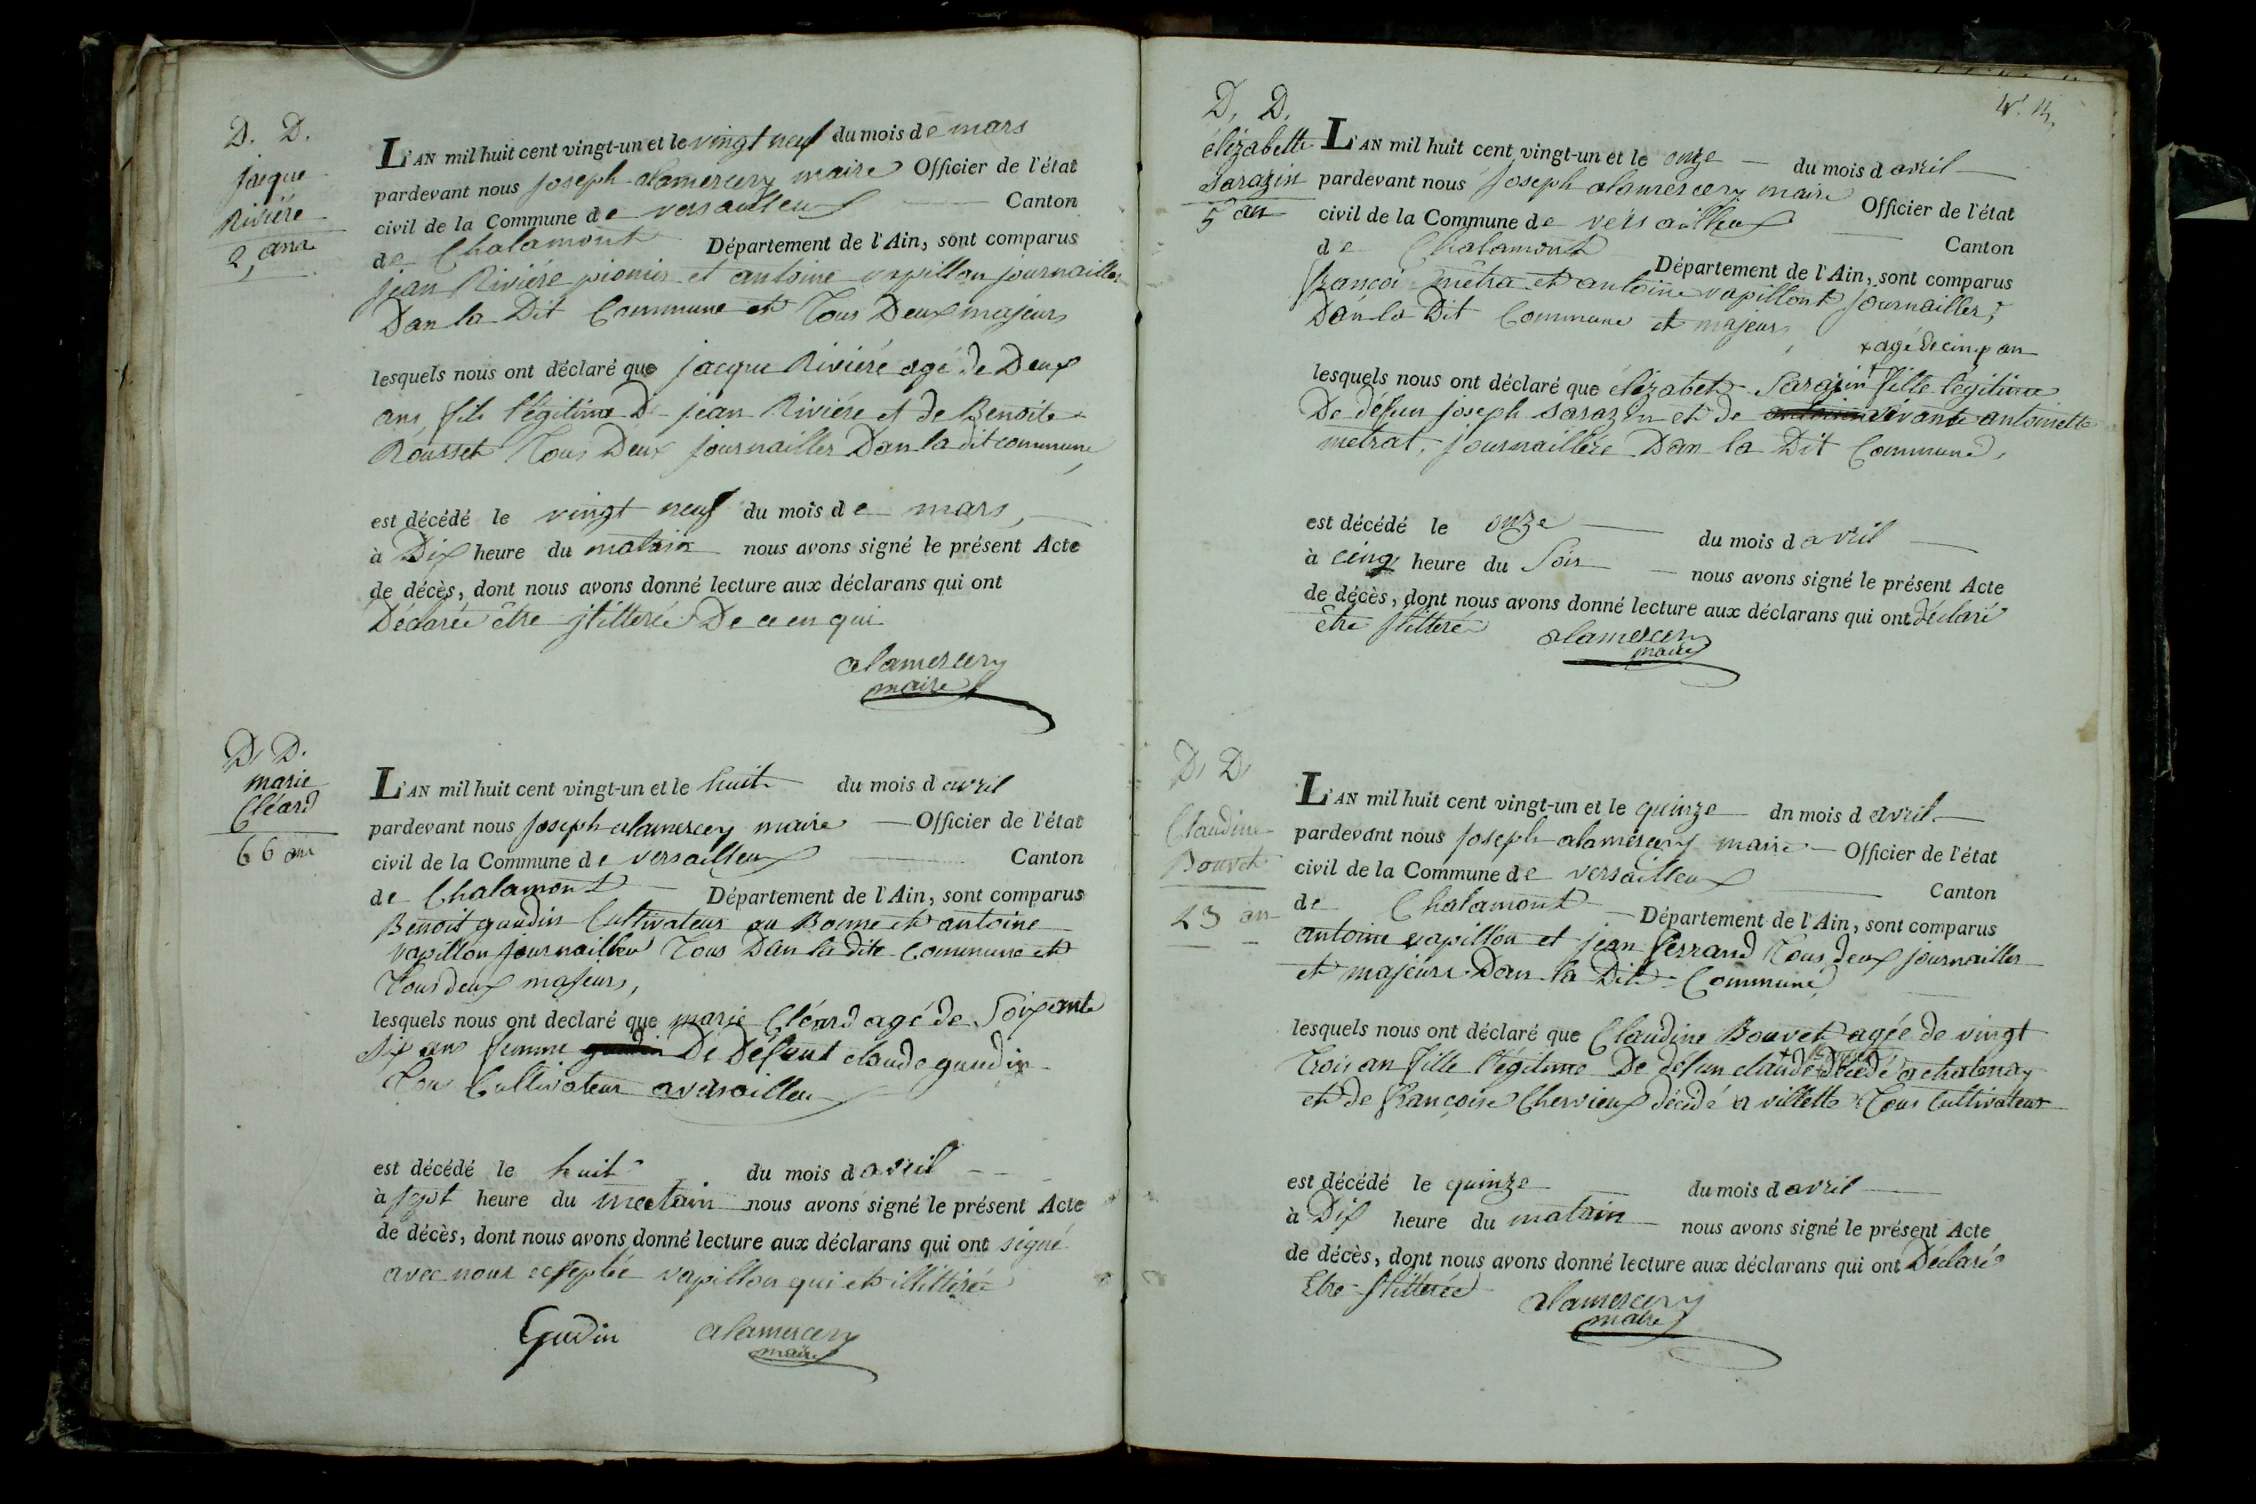 D. D.
jacque
Riviére
2, ans
L'AN mil huit cent vingt-un et le vingt neuf du mois de mars
pardevant nous joseph alamercery maire Officier de l'état
civil de la Commune de versailleux Canton
de Chalamont Département de l'Ain, sont comparus
jean Riviére pionier et antoine vapillon journailler
Dan la Dit Commune et Tous Deux majeurs
lesquels nous ont déclaré que jacque Riviére agé de Deux
ans, fils légitime De jean Riviére et de Benoite
Rousset Tous Deux journailler Dan la dit commune,
est décédé le vingt neuf du mois de mars,
à Dix heure du matain nous avons signé le présent Acte
de décès, dont nous avons donné lecture aux déclarans qui ont
Déclarée être jlitterée De ce en qui
alamercery
maire
D, D.
marie
Cléard
66 an
L'AN mil huit cent vingt-un et le huit du mois d avril
pardevant nous joseph alamercery maire Officier de l'état
civil de la Commune de versailleux Canton
de Chalamont Département de l'Ain, sont comparus
Benoit gaudin Cultivateur au Bonne et antoine
vapillon journailleu Tous Dan la dite Commune et
Tous deux majeurs,
lesquels nous ont declaré que marie Cléard agé de Soixante
six an femme gaudin De Défunt claude gaudin
Tou Cultivateur a versailleu
est décédé le huit du mois d avril
à sept heure du mactain nous avons signé le présent Acte
de décès, dont nous avons donné lecture aux déclarans qui ont signé
avec nour exseptée vapillon qui et illittérée
Gudin alamercery
maire
D, D,
élizabette
Sarazin
5 an
L'AN mil huit cent vingt-un et le onze du mois d avril
pardevant nous joseph alamercery maire Officier de l'état
civil de la Commune de vérsailleux Canton
de Chalamont Département de l'Ain, sont comparus
françoi métra et antoine vapillont journailler,
Dan la Dit Commune et majeur,
+ agé de cinq an
lesquels nous ont déclaré que élizabet Sarazin + fille légitime
De défun joseph sarazin et de vivante antoinette
metrat, journaillére Dan la Dit Commune,
est décédé le onze du mois d avril
à cinq heure du Soir nous avons signé le présent Acte
de décès, dont nous avons donné lecture aux déclarans qui ont déclaré
être jlitterée alamercery
maire
D, D,
Claudine
Bouvet
23 an
L'AN mil huit cent vingt-un et le quinze dn mois d avril
pardevant nous joseph alamercery maire Officier de l'état
civil de la Commune de versailleux Canton
de Chalamont Département de l'Ain, sont comparus
antoine vapillon et jean ferrand Tous deux journailler
et majeurs Dan la Dit Commune,
lesquels nous ont déclaré que Claudine Bouvet agée de vingt
Trois an fille légitime De défun claude + décédé a chatenay
et de françoise Chervieux décidé a villette Tous Cultivateur
est décédé le quinze du mois d avril
à Dix heure du matain nous avons signé le présent Acte
de décès, dont nous avons donné lecture aux déclarans qui ont Déclaré
Etre jlitterée alamercery
maire